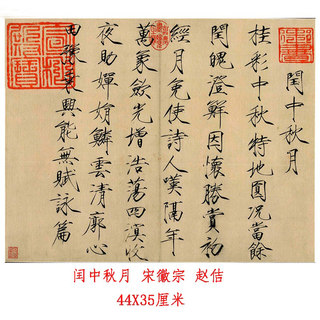 閏中秋月
桂彩中秋特地圓況當餘
閏魄澄鮮因懷勝賞初
經月免使詩人嘆隔年
萬象歛光增浩蕩四溟收
夜助嬋娟鱗雲清廓心
田豫乘興能無賦詠篇
闰中秋月 宋徽宗 赵佶
44X35厘米